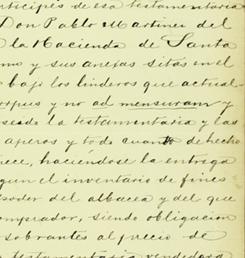 rticipes de esa testamentaria
Don Pablo Martinez del
la Hacienda de Santa
mo y sus anexas sitas en el
bajo los linderos que actual-
corpus y no ad mensuram y
desde la testamentaria y las
aperos y todo cuanto de hecho
ece, haciéndose la entrega
gun el inventario de fines
poder del albacea y del que
omprador, siendo obligacion
sobrantes al precio de
testamentaria vendedora